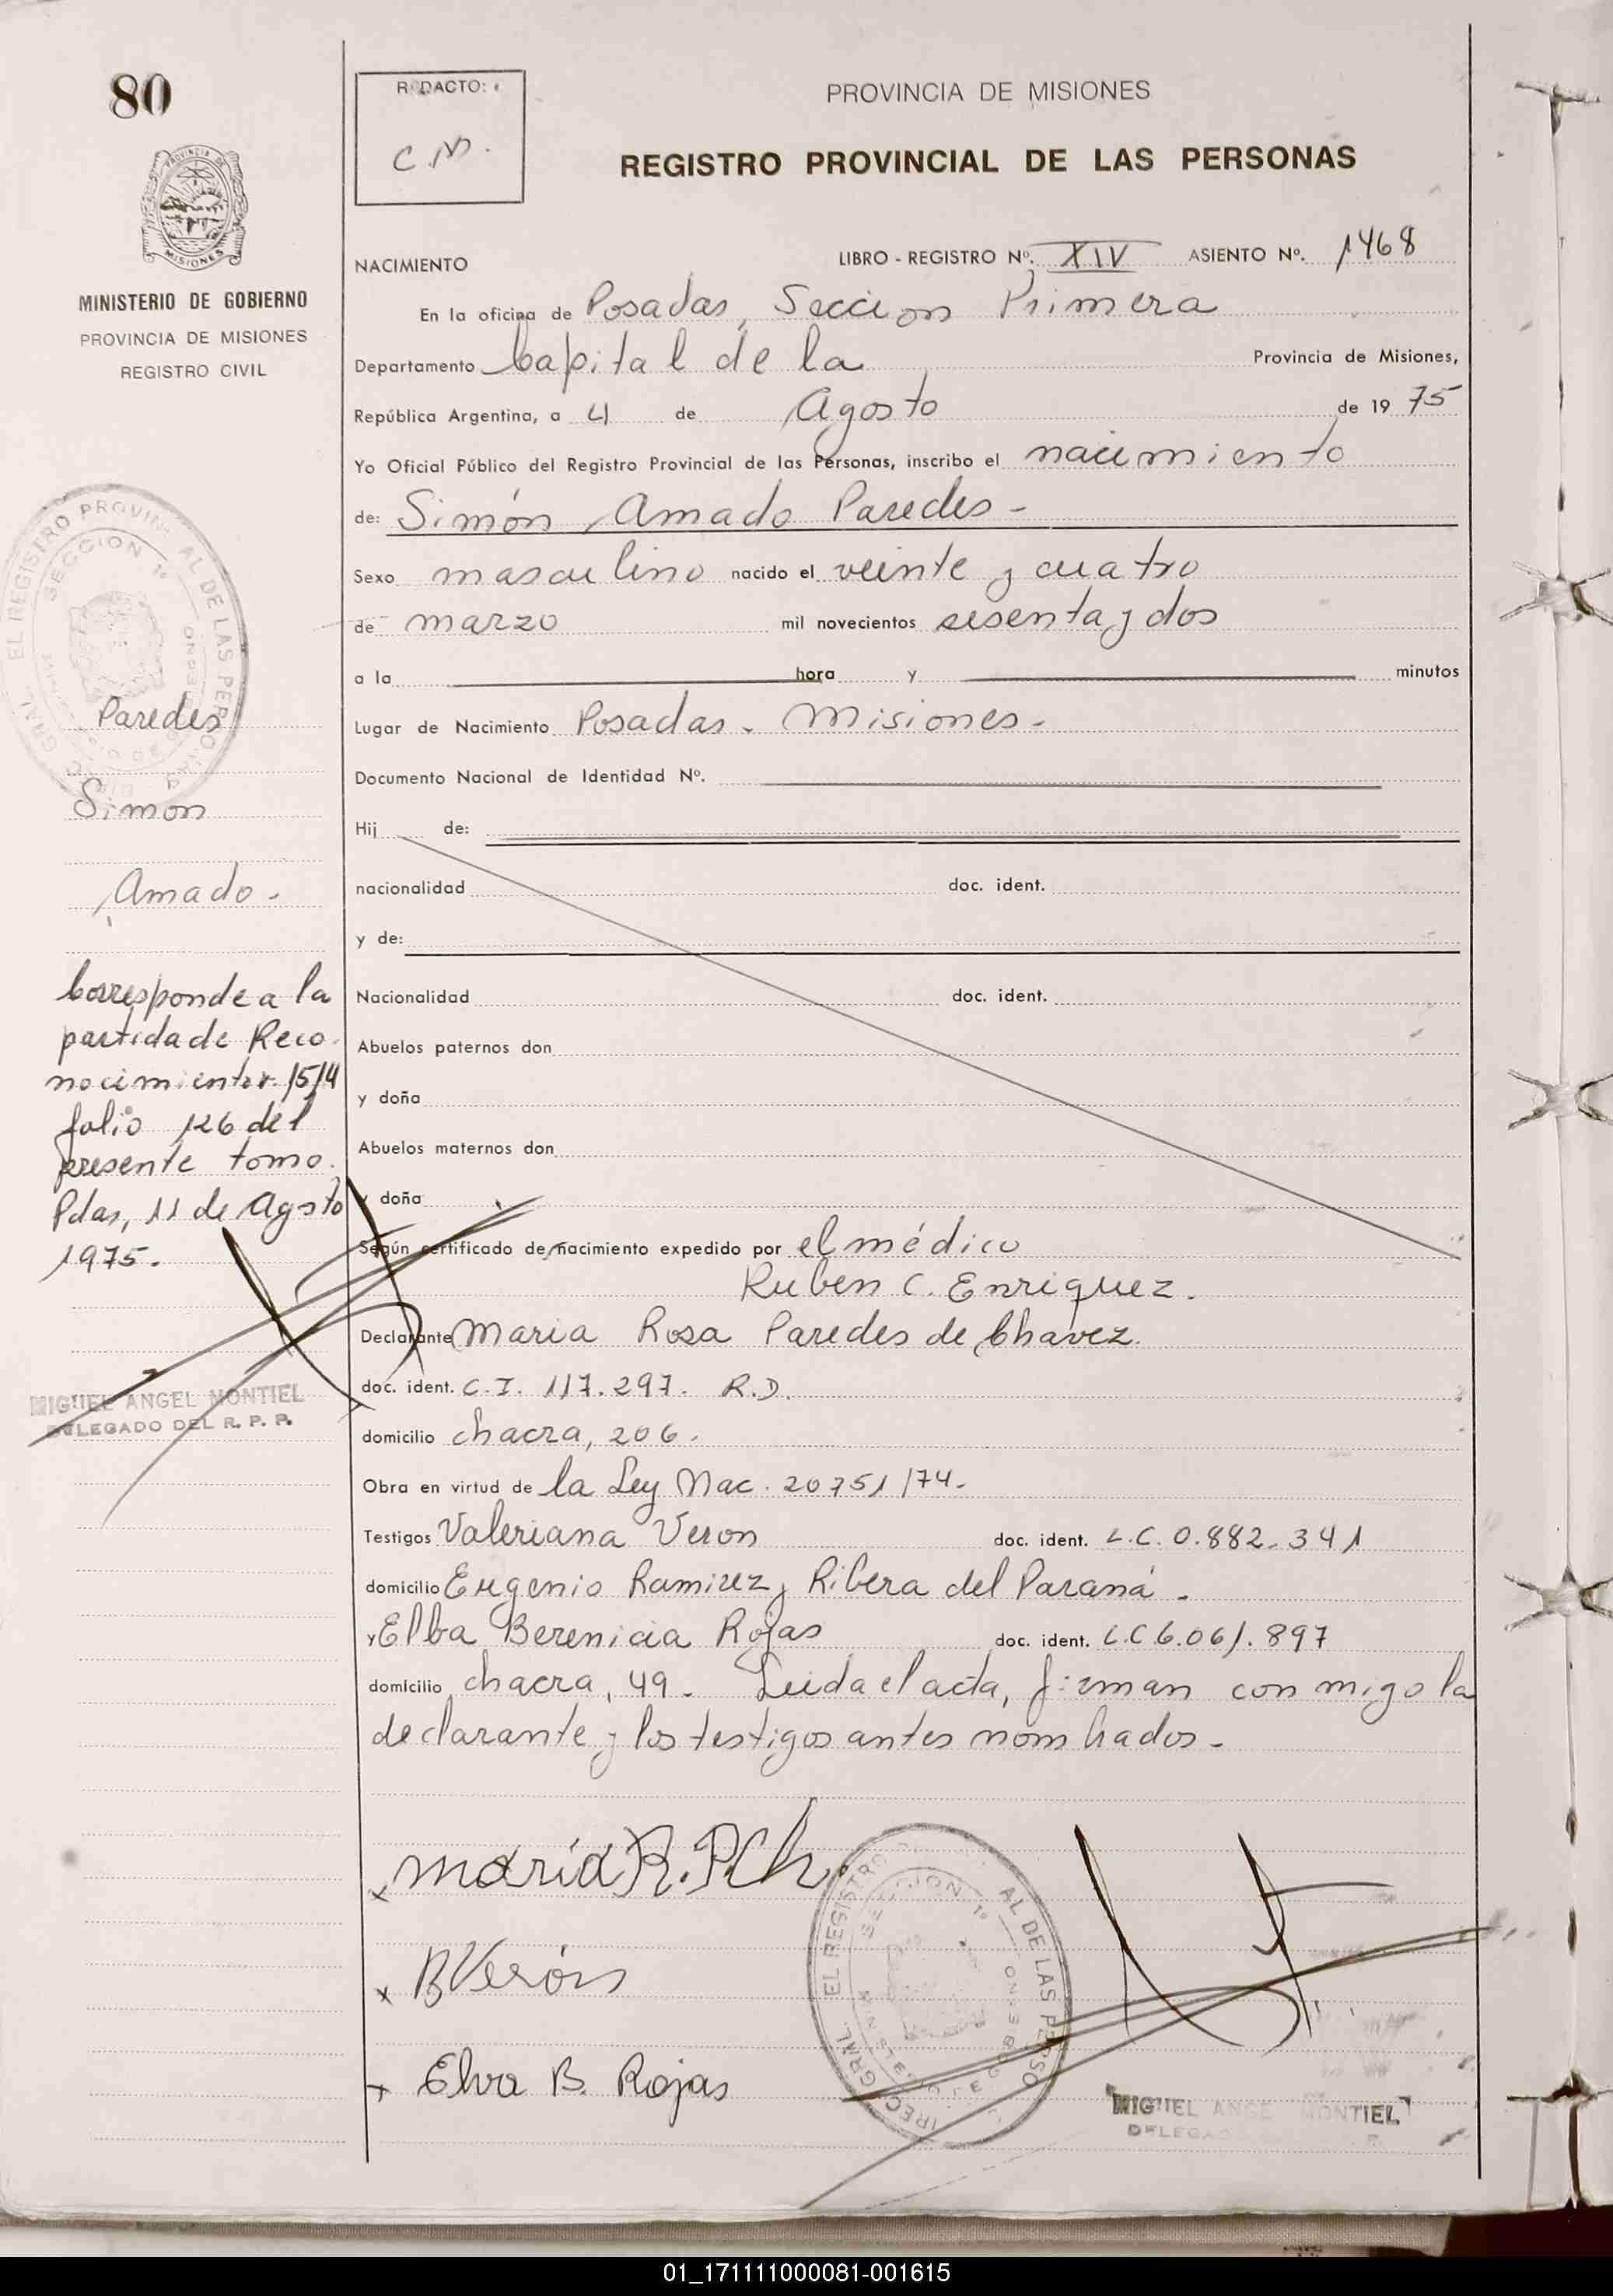 80
REDACTO:
C.M.
PROVINCIA DE MISIONES
REGISTRO PROVINCIAL DE LAS PERSONAS
PROVINCIA DE
MISIONES
MINISTERIO DE GOBIERNO
PROVINCIA DE MISIONES
REGISTRO CIVIL
NACIMIENTO
LIBRO - REGISTRO Nº. XIV ASIENTO Nº. 1468
En la oficina de Posadas, Seccion Primera
Departamento Capital de la Provincia de Misiones,
República Argentina, a 4 de Agosto de 1975
Yo Oficial Público del Registro Provincial de las Personas, inscribo el nacimiento
de: Simón Amado Paredes -
Sexo masculino nacido el veinte y cuatro
de marzo mil novecientos sesenta y dos
a la hora y minutos
Lugar de Nacimiento Posadas - Misiones -
Documento Nacional de Identidad Nº.
Hij de:
nacionalidad doc. ident.
y de:
Nacionalidad doc. ident.
Abuelos paternos don
y doña
Abuelos maternos don
y doña
Según certificado de nacimiento expedido por el médico
Ruben C. Enriquez.
Declarante Maria Rosa Paredes de Chavez.
doc. ident. C.I. 117.297. R.D.
domicilio chacra, 206.
Obra en virtud de la Ley Nac. 20751/74-
Testigos Valeriana Veron doc. ident. L.C. 0.882.341
domicilio Eugenio Ramirez y Ribera del Paraná.
y Elba Berenicia Rojas doc. ident. L.C 6.061.897
domicilio chacra, 49. Leida el acta, firman con migo la
declarante y los testigos antes nombrados-
María R. P. Ch.
BVerón
Elva B. Rojas
EL REGISTRO AL DE LAS PERSO
SECCION 1º
MIGUEL ANGE MONTIEL
DELEGA
EL REGISTRO PROVIN AL DE LAS PERSO
SECCION 1º
Paredes
Simon
Amado.
Corresponde a la
partida de Reco
nocimiento 1514
folio 126 del
presente tomo.
Pdas, 11 de Agosto
1975.
MIGUEL ANGEL MONTIEL
DELEGADO DEL R. P. P.
01_171111000081-001615